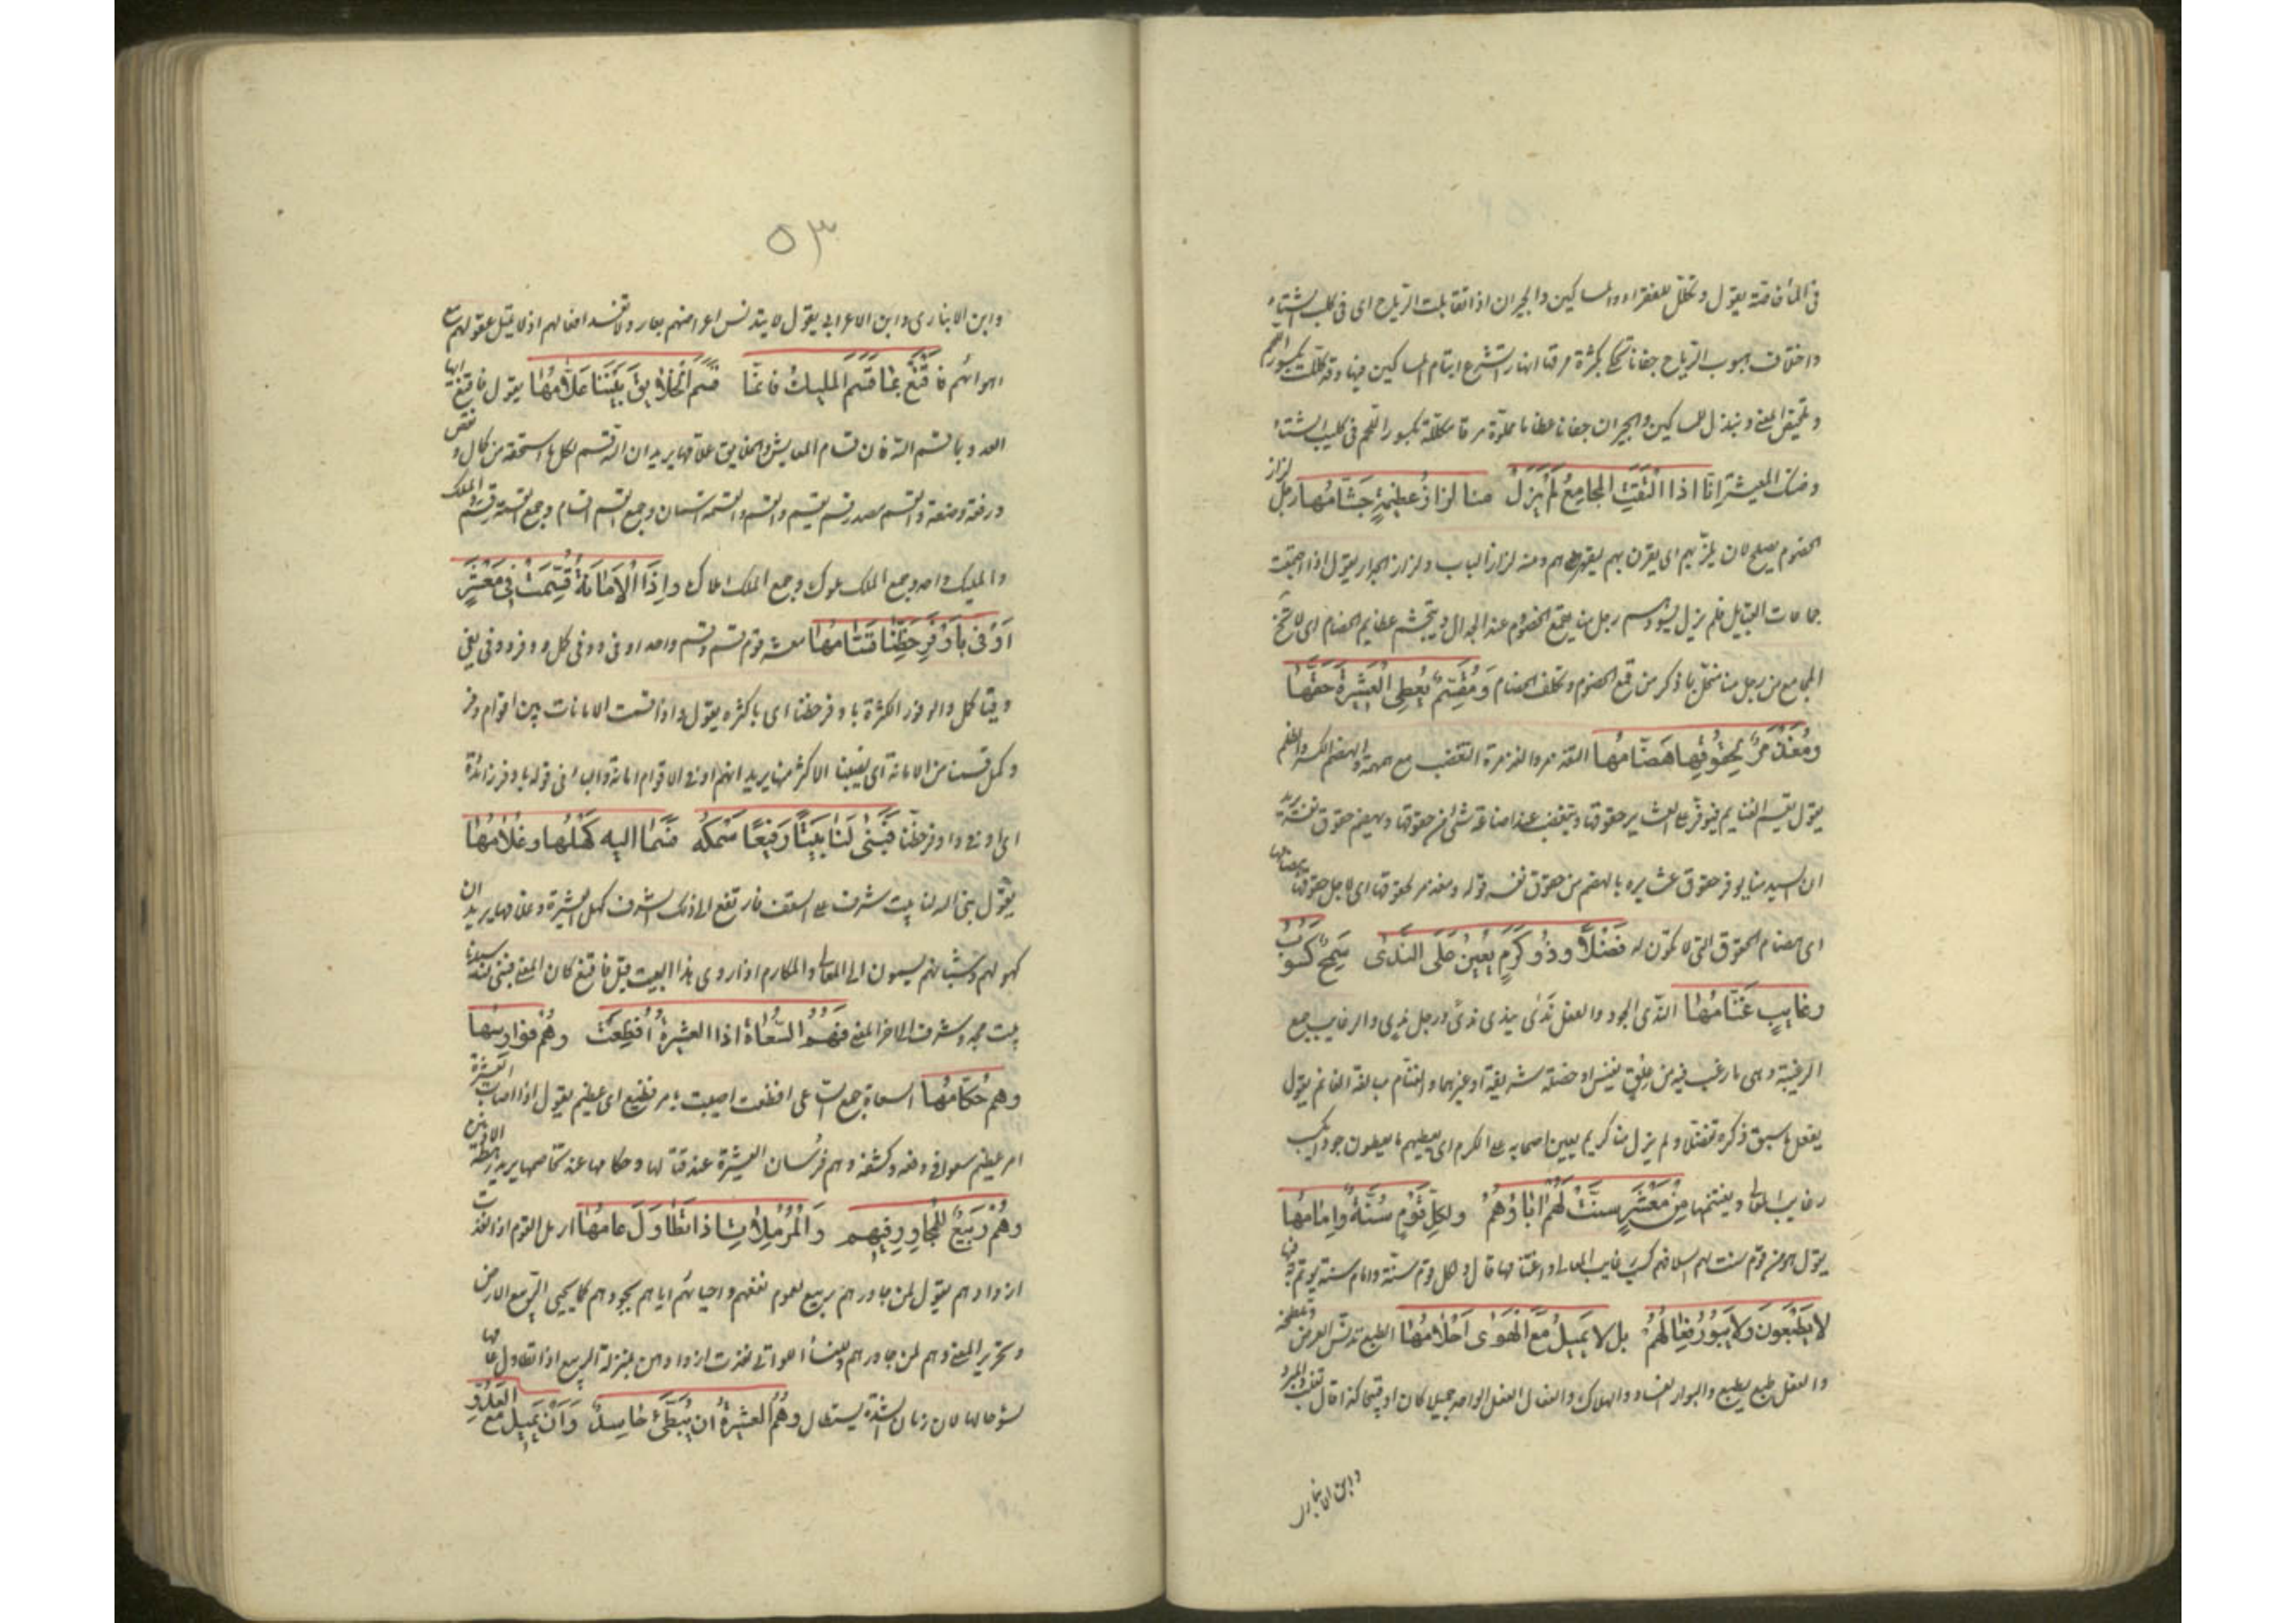 في المناقضة يقول ونكلل للفقراء والمساكين والجيران اذا تقابلت الرياح اى فى كلب الشتاء
واختلاف هبوب الرياح جفانا تحكى بكثرة مرقها انهارا تشرع ايتام المساكين فيها وقد كللت بكسور اللحم
وتلخيص المعنى ونبذل للمساكين والجيران جفانا عظاما مملوة مرقا مكللة بكسور اللحم فى كلب الشتاء
وضنك المعيشة اِنّا اذا الْتَقَتِ المجامِعُ لَمْ يَزَلْ منا لِزازُ عظيمةٍ جَشّامُها رجل لزاز
الخصوم يصلح لان يلزّ بهم اى يقرن بهم ليقهرهم ومنه لزاز الباب ولزاز الجدار يقول اذا اجتمعت
جماعات القبايل فلم يزل يسودهم رجل منا يقمع الخصوم عند الجدال ويتجشم عظايم الخصام اى لا تخلو
المجامع من رجل منا متحل بما ذكر من قمع الخصوم وتكلف الخصام وَمُقَسِّمٌ يُعْطِى الْعَشِيرَةَ حَقَّها
ومُغَذْمِرٌ لِحُقُوقِها هَضّامُها التغذمر والغذمرة التغضب مع همهمة والهضم الكسر والظلم
يقول يقسم الغنايم فيوفر على العشاير حقوقها ويتغضب عند اضاعة شئ من حقوقها ويهضم حقوق نفسه يريد
ان السيد منا يوفر حقوق عشايره بالهضم من حقوق نفسه قوله ومغذمر لحقوقها اى لاجل حقوقها هضامها
اى هضام الحقوق التى تكون له فَضْلًا وذُو كَرَمٍ يُعِينُ عَلَى النَّدٰى سَمِحٌ كَسُوبُ
رغايِبٍ غَنّامُها الندى الجود والفعل نَدِىَ يندى ندىً ورجل ندى والرغايب جمع
الرغيبة وهى ما رغب فيه من علق نفيس او خصلة شريفة او غيرهما والغنام مبالغة الغانم يقول
يفعل ما سبق ذكره تفضلا ولم يزل منا كريم يعين اصحابه على الكرم اى يعطيهم ما يعطون جواد يكسب
رغايب المعالى ويغتنمها مِنْ مَعْشَرٍ سَنَّتْ لَهُمْ اٰباؤُهُمْ ولِكلِّ قَوْمٍ سُنَّةٌ وإِمامُها
يقول هو من قوم سنت لهم اسلافهم كسب رغايب المعالى واغتنامها قال ولكل قوم سنة وامام سنة يؤتم به فيها
لا يَطْبَعُونَ وَلا يَبُورُ فِعالُهُمْ بل لا يَمِيلُ مَعَ الْهَوٰى اَحْلامُها الطبع تدنس العرض وتلطخه
والفعل طبع يطبع والبوار الفساد والهلاك والفعال الفعل الواحد جميلا كان او قبيحا كذا قال ثعلب والمبرد
وابن الانبارى
٥٣
وابن الانبارى وابن الاعرابى يقول لا يتدنس اعراضهم بعار ولا تفسد افعالهم اذ لا يميل عقولهم مع
اهوائهم فَاقْنَعْ بِمَا قَسَمَ المليكُ فَاِنَّمَا قَسَمَ الْخَلايِقَ بَيْنَنا عَلّامُها يقول فاقنع ايها
العدو بما قسم الله فان قسام المعايش والخلايق علامها يريد ان الله قسم لكل ما استحقه من كمال ونقص
ورفعة وضعة والقسم مصدر قسم يقسم والقسم والقسمة اسمان وجمع القسم اقسام وجمع القسمة قسم والملك
والمليك واحد وجمع الملك ملوك وجمع الملك املاك واِذَا الْاَمَانَةُ قُسِّمَتْ فِى مَعْشَرٍ
اَوْفٰى بِاَوْفَرِ حَظِّنا قَسّامُها معشر قوم قسم وقسم واحد اوفى ووفى كمل ووفر ووفى يفى
وفيا كمل والوفور الكثرة باوفر حظنا اى باكثره يقول واذا قسمت الامانات بين اقوام وفر
وكمل قسمنا من الامانة اى نصيبنا الاكثر منها يريد انهم اوفى الاقوام امانة والباء فى قوله باوفر زائدة
اى اوفى واوفر حظنا فَبَنٰى لَنا بَيْتًا رَفِيعًا سَمْكُه فَسَما اليه كَهْلُها وغُلامُها
يقول بنى الله لنا بيت شرف عالى السقف فارتفع الى ذلك الشرف كهل العشيرة وغلامها يريد ان
كهولهم وشبانهم يسمون الى المعالى والمكارم اذا روى هذا البيت قبل فاقنع كان المعنى فبنى لنا سيدنا
بيت مجد وشرف الى اخر المعنى فَهُمُ السُّعاةُ اذا العشيرةُ اُفْظِعَتْ وهُمُ فوارِسُها
وهم حُكّامُها السعاة جمع الساعى افظعت اصيبت بامر فظيع اى عظيم يقول اذا اصاب العشيرة
امر عظيم سعوا فى دفعه وكشفه وهم فرسان العشيرة عند قتالها وحكامها عند تخاصمها يريد رهطه الادنين
وهُمُ رَبِيعٌ لِلْمُجاوِرِ فِيهِم وَالْمُرْمِلاتِ اذا تَطاوَلَ عامُها ارمل القوم اذا نفدت
ازوادهم يقول لمن جاورهم ربيع لعموم نفعهم واحيائهم اياهم بجودهم كما يحيى الربيع الارض
وتحرير المعنى هم لمن جاورهم وللنساء اللواتى نفدت ازوادهن بمنزلة الربيع اذا تطاول عامها
لسوء حالها لان زمان الشدة يستطال وهُمُ العشيرةُ اَن يُبَطِّئَ حاسِدٌ وَاَنْ يَمِيلَ مع العَدُوِّ